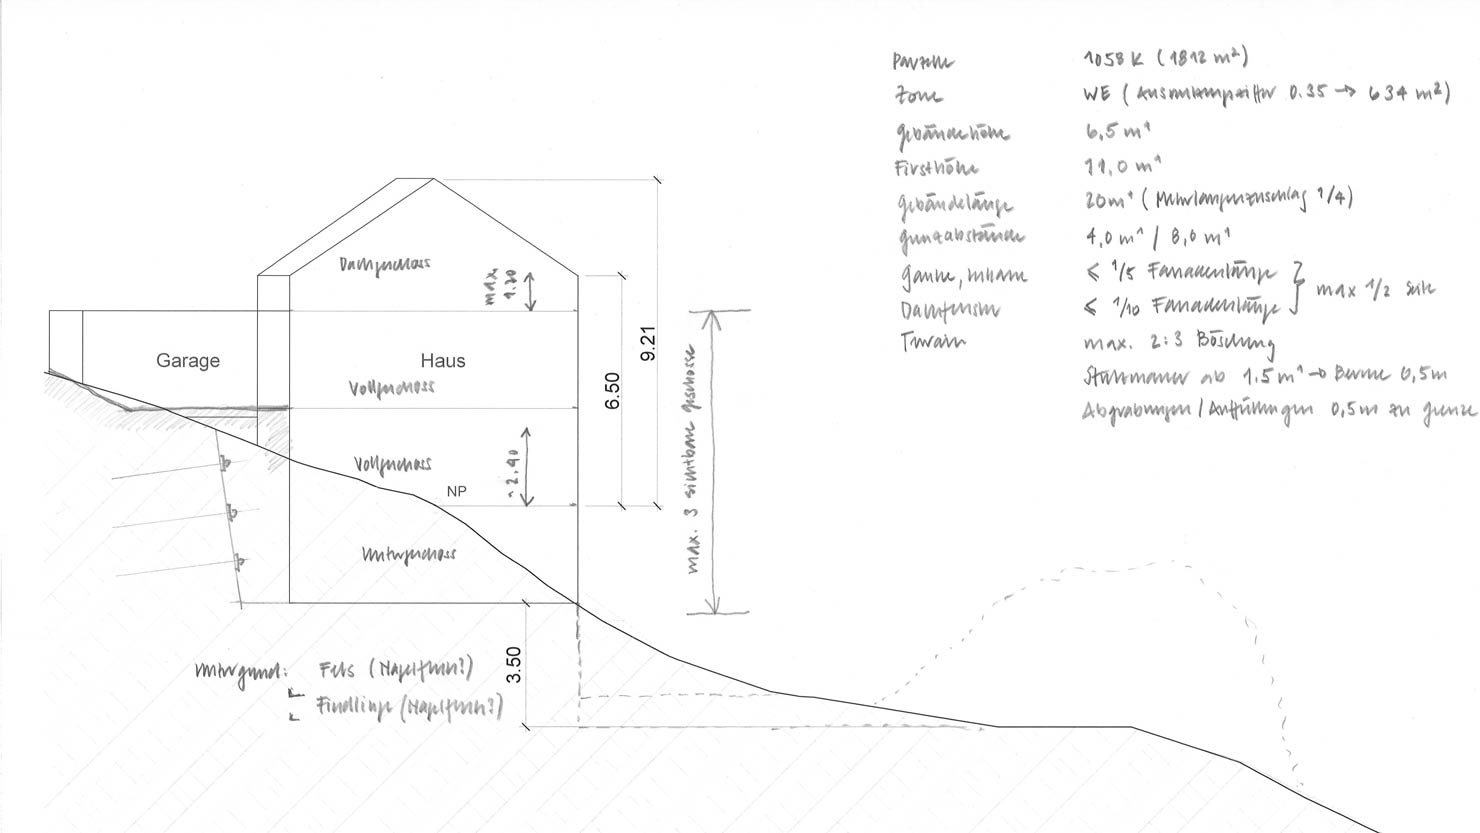 Parzelle 1058 K (1812 m²)
Zone WE (Ausnutzungsziffer 0.35 → 634 m²)
Gebäudehöhe 6,5 m¹
Firsthöhe 11,0 m¹
Gebäudelänge 20 m¹ (Mehrlängenzuschlag 1/4)
Grenzabstände 4,0 m¹ / 8,0 m¹
≤ 1/5 Fassadenlänge
max 1/2 Seite
Dachfenster ≤ 1/10 Fassadenlänge
Terrain max. 2:3 Böschung
Stützmauer ab 1.5 m¹ → Berme 0,5 m
Abgrabungen / Auffüllungen 0,5 m zu Grenze
Dachgeschoss
max
1.20
Garage
Haus
Vollgeschoss
Vollgeschoss
~2.40
NP
Untergeschoss
6.50
9.21
max. 3 sichtbare Geschosse
3.50
Untergrund: Fels (Nagelfluh?)
Findlinge (Nagelfluh?)